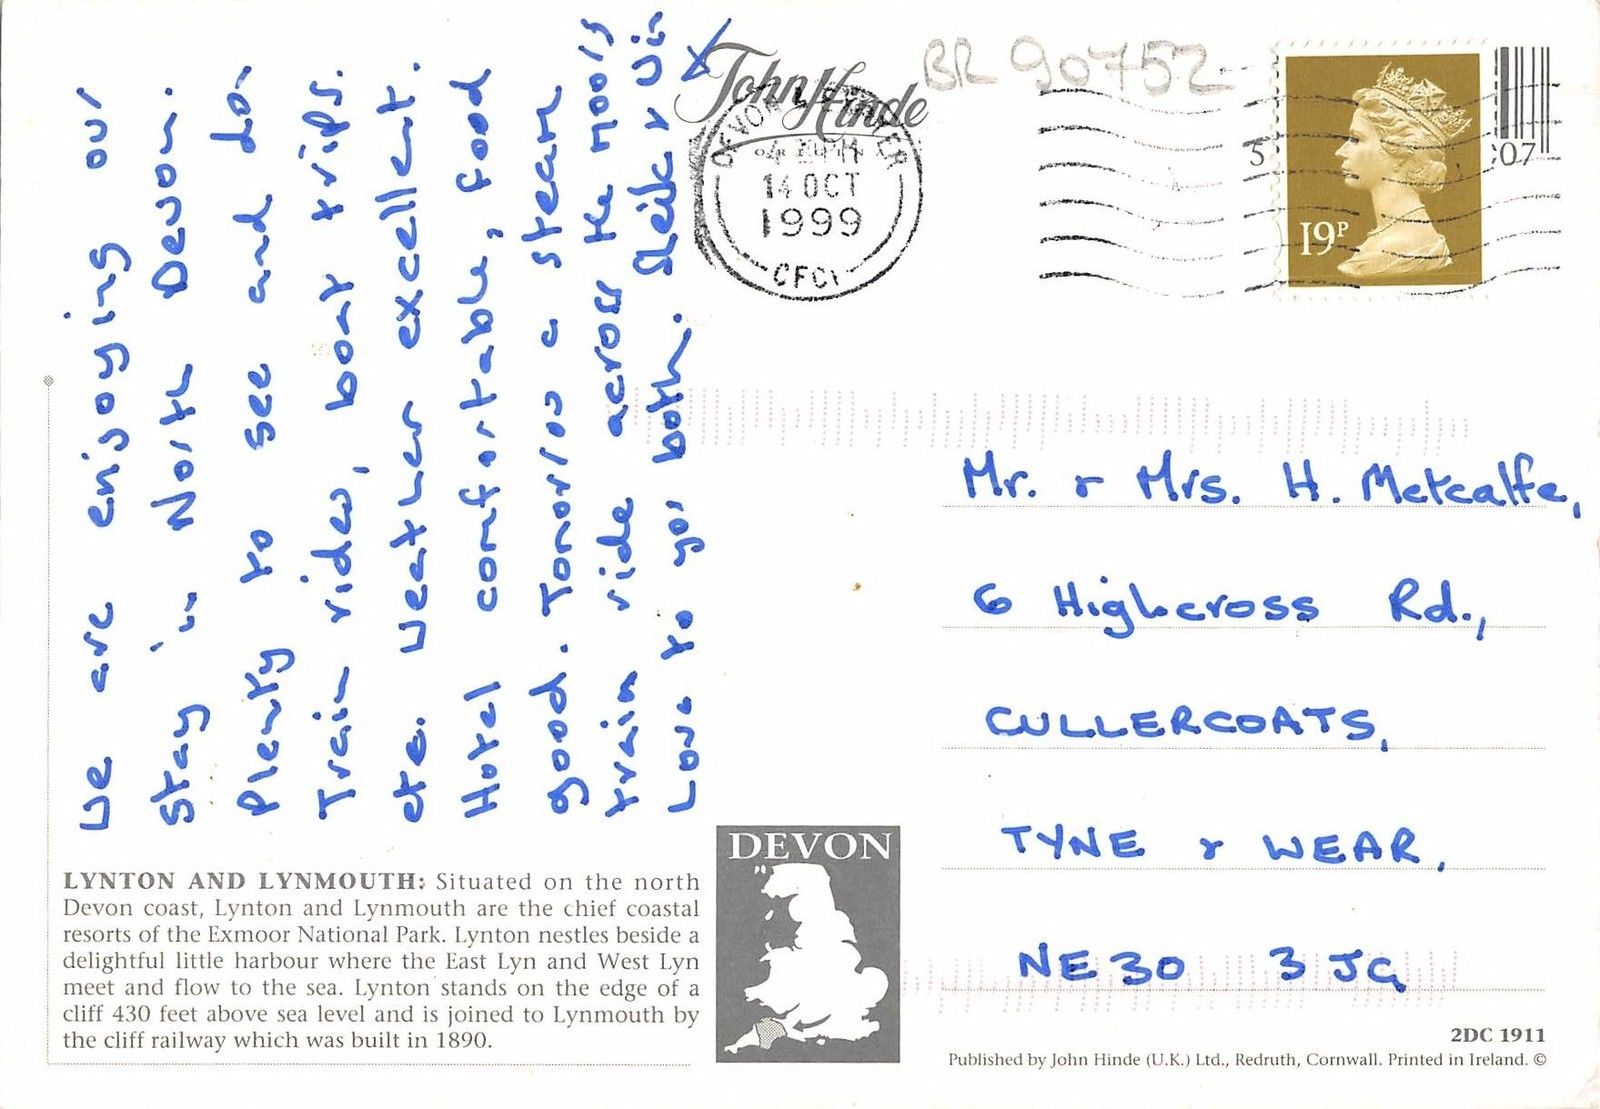 We are enjoying our
stay in North Devon.
Plenty to see and do
Train rides, boat trips.
etc. Weather excellent.
Hotel comfortable, food
good. Tomorrow a steam
train ride across the moors
Love to you both. Sheila & Vic
X
John Hinde
BR 90752
DEVON
EXETER
14 OCT
1999
5
19P
07
Mr. & Mrs. H. Metcalfe,
6 Highcross Rd.,
CULLERCOATS,
TYNE & WEAR,
NE30 3JG
LYNTON AND LYNMOUTH: Situated on the north
Devon coast, Lynton and Lynmouth are the chief coastal
resorts of the Exmoor National Park. Lynton nestles beside a
delightful little harbour where the East Lyn and West Lyn
meet and flow to the sea. Lynton stands on the edge of a
cliff 430 feet above sea level and is joined to Lynmouth by
the cliff railway which was built in 1890.
DEVON
2DC 1911
Published by John Hinde (U.K.) Ltd., Redruth, Cornwall. Printed in Ireland. ©